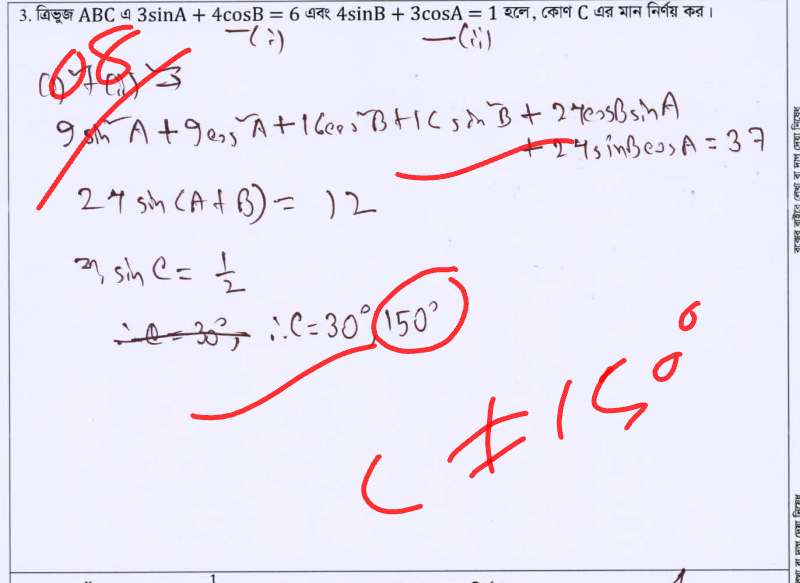 3. ত্রিভুজ ABC এ 3sinA + 4cosB = 6 এবং 4sinB + 3cosA = 1 হলে, কোণ C এর মান নির্ণয় কর।
—(i) —(ii)
08
(i)² + (ii)² ⇒
9 sin²A + 9cos²A + 16cos²B + 16 sin²B + 24cosBsinA
+ 24sinBcosA = 37
24 sin(A+B) = 12
বা, sin C = 1/2
∴ C = 30°, ∴ C = 30°, 150°
C ≠ 150°